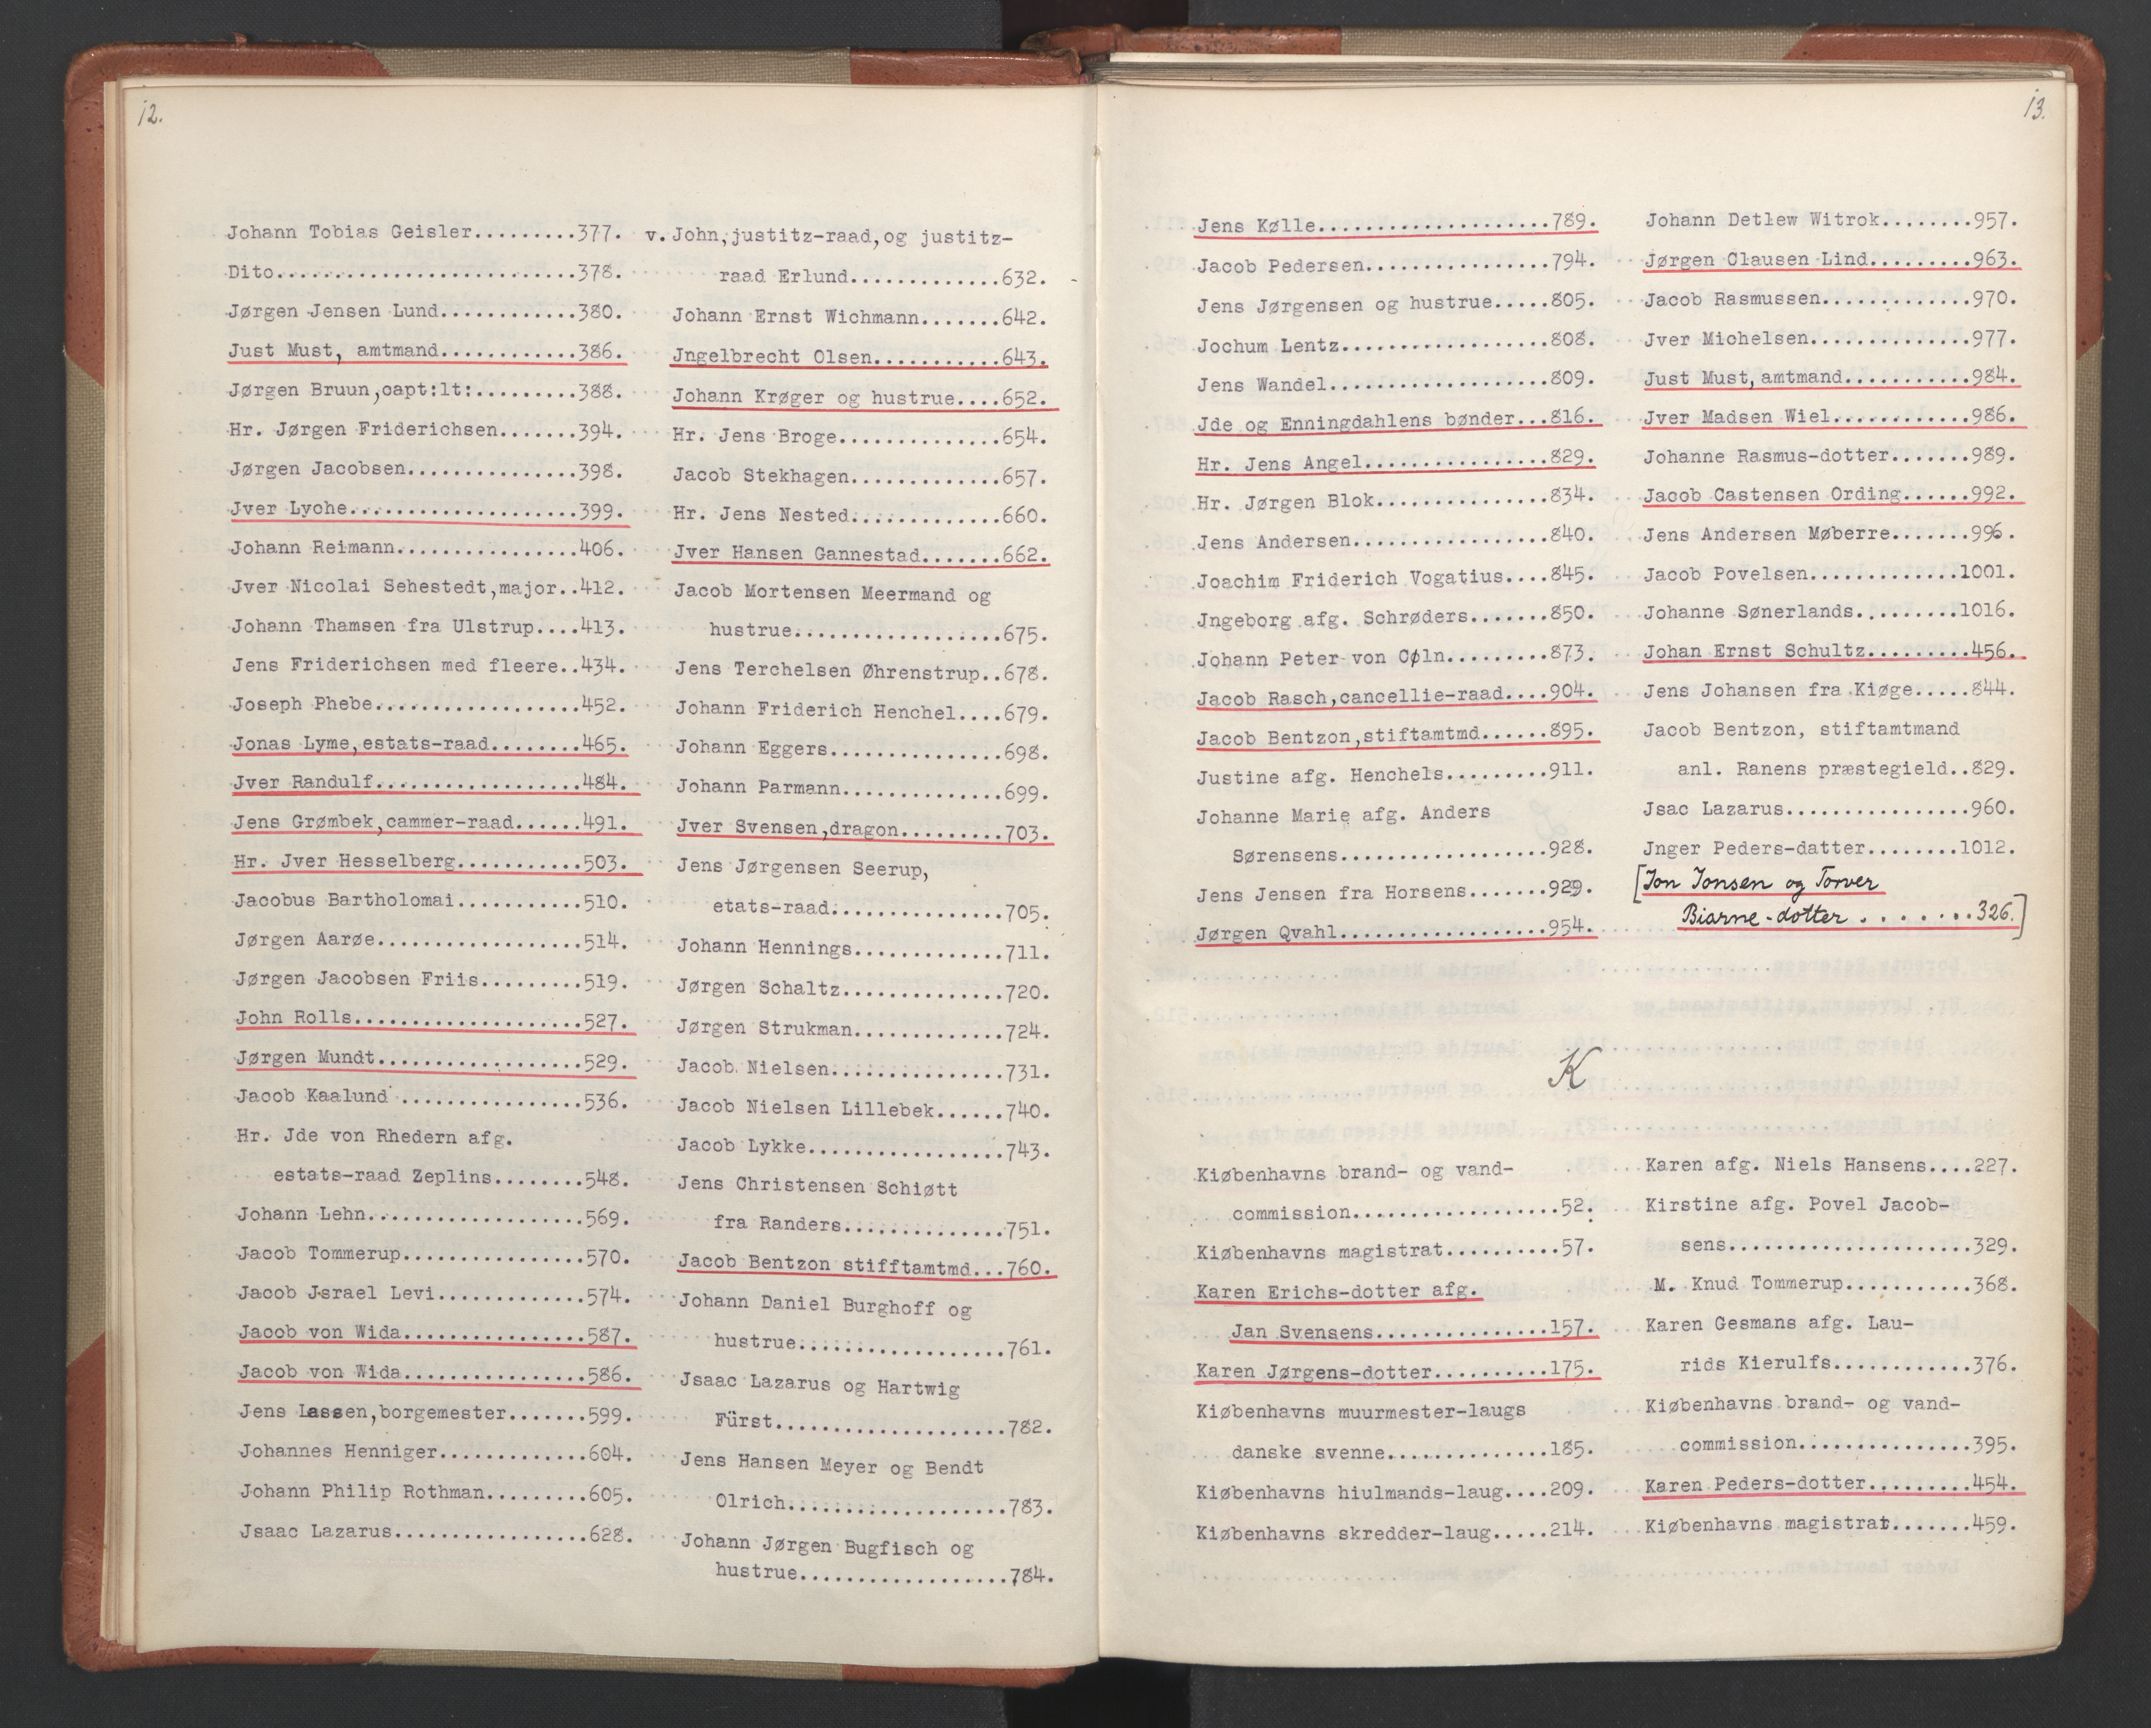 12.
Johann Tobias Geisler.........377.
Dito.........................378.
Jørgen Jensen Lund............380.
Just Must, amtmand............386.
Jørgen Bruun,capt:lt:.........388.
Hr. Jørgen Friderichsen.......394.
Jørgen Jacobsen...............398.
Jver Lyche....................399.
Johann Reimann................406.
Jver Nicolai Sehestedt,major..412.
Johann Thamsen fra Ulstrup....413.
Jens Friderichsen med fleere..434.
Joseph Phebe..................452.
Jonas Lyme,estats-raad........465.
Jver Randulf..................484.
Jens Grømbek,cammer-raad......491.
Hr. Jver Hesselberg...........503.
Jacobus Bartholomai...........510.
Jørgen Aarøe..................514.
Jørgen Jacobsen Friis.........519.
John Rolls....................527.
Jørgen Mundt..................529.
Jacob Kaalund ................536.
Hr. Jde von Rhedern afg.
estats-raad Zeplins........548.
Johann Lehn...................569.
Jacob Tommerup................570.
Jacob Jsrael Levi.............574.
Jacob von Wida................587.
Jacob von Wida................586.
Jens Lassen,borgemester.......599.
Johannes Henniger.............604.
Johann Philip Rothman.........605.
Jsaac Lazarus.................628.
v. John,justitz-raad,og justitz-
raad Erlund..............632.
Johann Ernst Wichmann.......642.
Jngelbrecht Olsen...........643.
Johann Krøger og hustrue....652.
Hr. Jens Broge..............654.
Jacob Stekhagen.............657.
Hr. Jens Nested.............660.
Jver Hansen Gannestad.......662.
Jacob Mortensen Meermand og
hustrue..................675.
Jens Terchelsen Øhrenstrup..678.
Johann Friderich Henchel....679.
Johann Eggers...............698.
Johann Parmann..............699.
Jver Svensen,dragon.........703.
Jens Jørgensen Seerup,
etats-raad...............705.
Johann Hennings.............711.
Jørgen Schaltz..............720.
Jørgen Strukman.............724.
Jacob Nielsen...............731.
Jacob Nielsen Lillebek......740.
Jacob Lykke.................743.
Jens Christensen Schiøtt
fra Randers..............751.
Jacob Bentzon stifftamtmd...760.
Johann Daniel Burghoff og
hustrue..................761.
Jsaac Lazarus og Hartwig
Fürst....................782.
Jens Hansen Meyer og Bendt
Olrich...................783.
Johann Jørgen Bugfisch og
hustrue..................784.
13.
Jens Kølle....................789.
Jacob Pedersen................794.
Jens Jørgensen og hustrue.....805.
Jochum Lentz..................808.
Jens Wandel...................809.
Jde og Enningdahlens bønder...816.
Hr. Jens Angel................829.
Hr. Jørgen Blok...............834.
Jens Andersen.................840.
Joachim Friderich Vogatius....845.
Jngeborg afg. Schrøders.......850.
Johann Peter von Cøln.........873.
Jacob Rasch,cancellie-raad....904.
Jacob Bentzon,stiftamtmd......895.
Justine afg. Henchels.........911.
Johanne Marie afg. Anders
Sørensens..................928.
Jens Jensen fra Horsens.......929.
Jørgen Qvahl..................954.
Johann Detlew Witrok........957.
Jørgen Clausen Lind.........963.
Jacob Rasmussen.............970.
Jver Michelsen..............977.
Just Must,amtmand...........984.
Jver Madsen Wiel............986.
Johanne Rasmus-dotter.......989.
Jacob Castensen Ording......992.
Jens Andersen Møberre.......996.
Jacob Povelsen.............1001.
Johanne Sønerlands.........1016.
Johan Ernst Schultz.........456.
Jens Johansen fra Kiøge.....844.
Jacob Bentzon, stiftamtmand
anl. Ranens præstegield..829.
Jsac Lazarus................960.
Jnger Peders-datter........1012.
[Jon Jonsen og Torver
Biarne-dotter . . . . . . . 326.]
K
Kiøbenhavns brand- og vand-
commission..................52.
Kiøbenhavns magistrat..........57.
Karen Erichs-dotter afg.
Jan Svensens...............157.
Karen Jørgens-dotter..........175.
Kiøbenhavns muurmester-laugs
danske svenne..............185.
Kiøbenhavns hiulmands-laug....209.
Kiøbenhavns skredder-laug.....214.
Karen afg. Niels Hansens....227.
Kirstine afg. Povel Jacob-
sens.....................329.
M. Knud Tommerup...........368.
Karen Gesmans afg. Lau-
rids Kierulfs............376.
Kiøbenhavns brand- og vand-
commission...............395.
Karen Peders-dotter.........454.
Kiøbenhavns magistrat.......459.